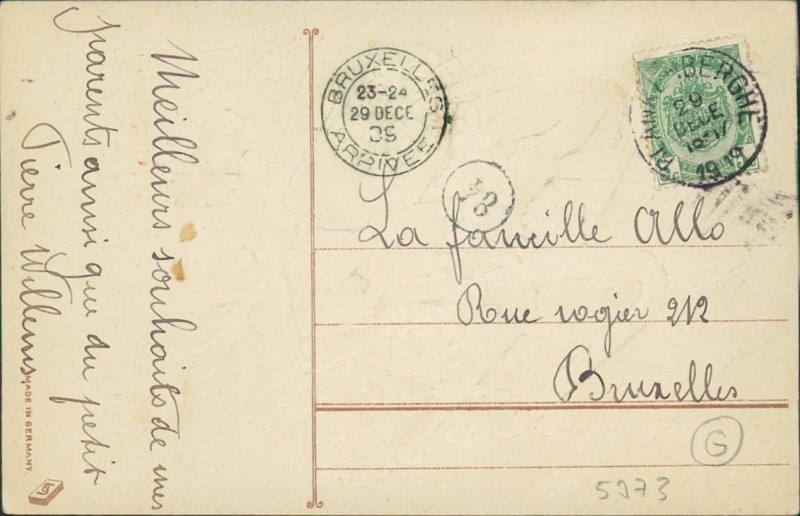 Meilleurs souhaits de mes
parents ainsi que du petit
Pierre Willems
MADE IN GERMANY.
BRUXELLES
23-24
29 DECE
09
ARRIVEE
BLANKENBERGHE
29
DECE
1909
La famille Allo
Rue rogier 212
Bruxelles
G
5973